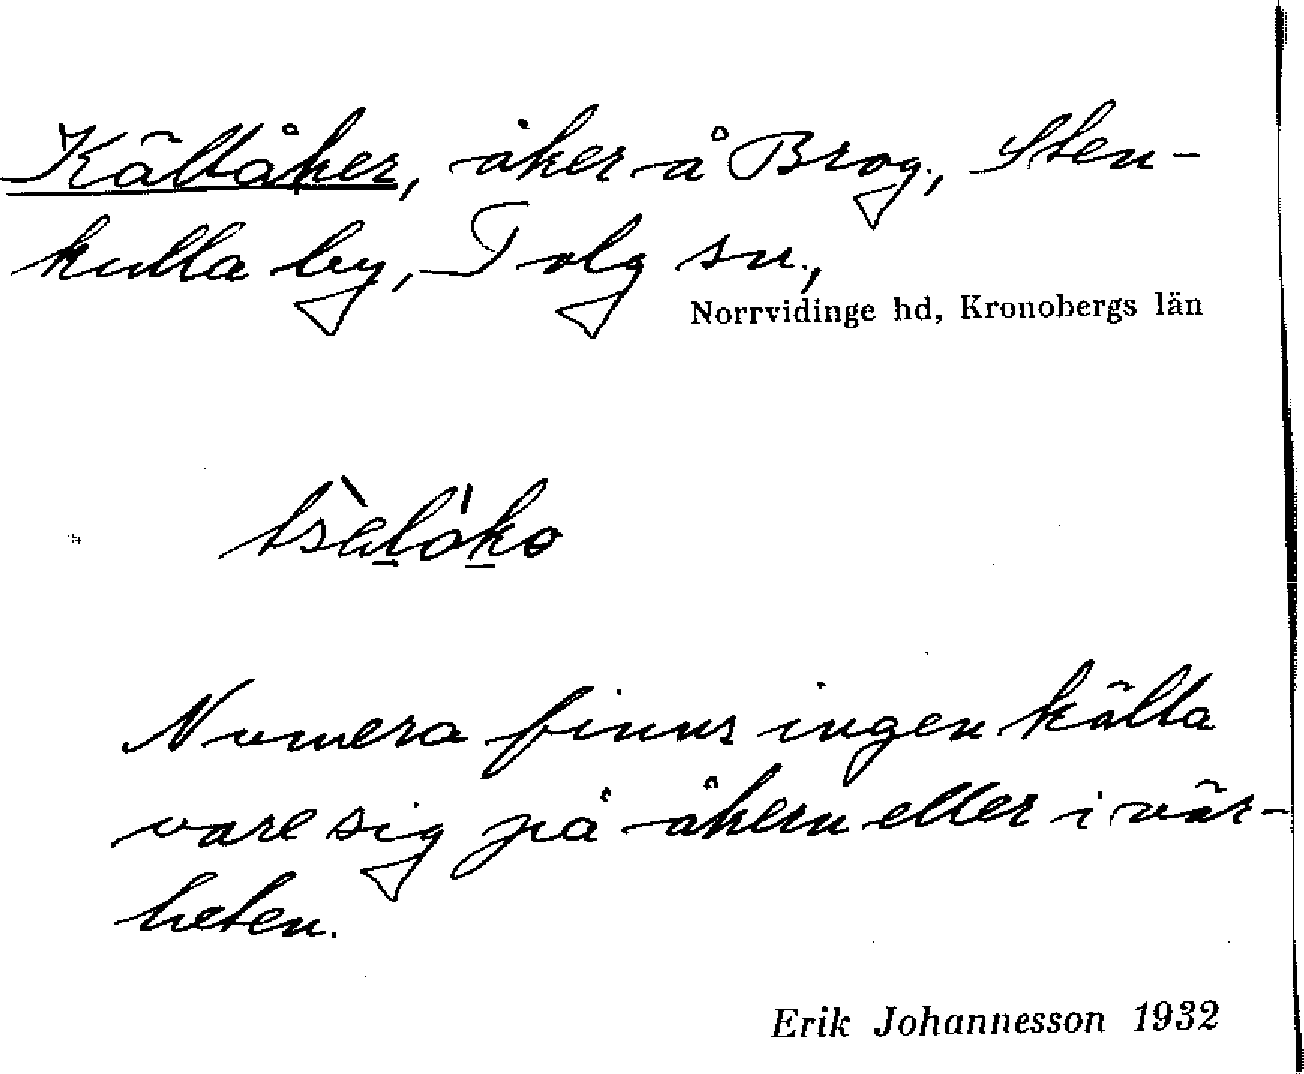 Källåker, åker å Brog., Sten-
kulla by, Tolg sn.,
Norrvidinge hd, Kronobergs län
Numera finns ingen källa
vare sig på åkern eller i när-
heten.
Erik Johannesson 1932